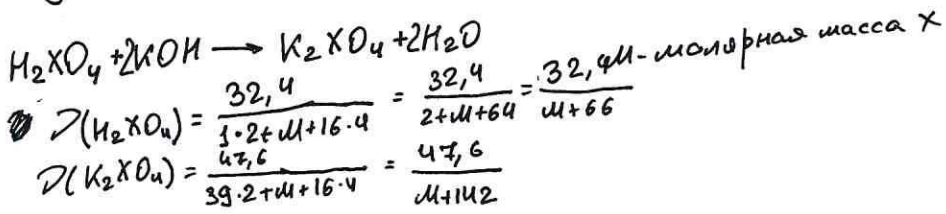 H₂XO₄ + 2KOH → K₂XO₄ + 2H₂O
ν(H₂XO₄) = 32,4 / (1·2+M+16·4) = 32,4 / (2+M+64) = 32,4 / (M+66) M - молярная масса X
ν(K₂XO₄) = 47,6 / (39·2+M+16·4) = 47,6 / (M+142)